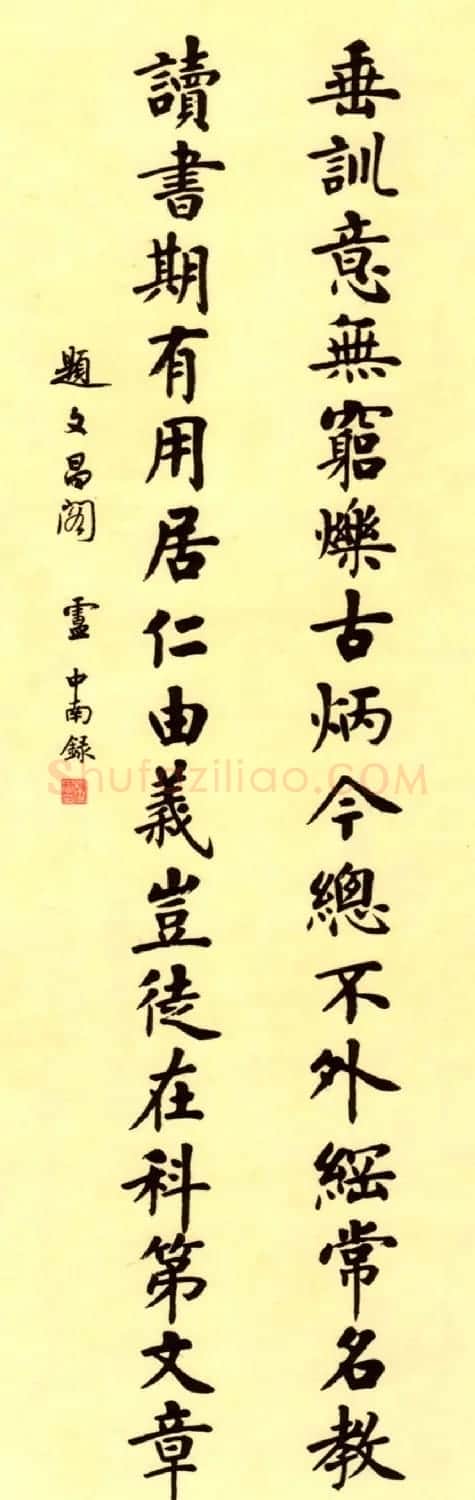 垂訓意無窮爍古炳今總不外綱常名教
讀書期有用居仁由義豈徒在科第文章
題文昌閣 盧中南録
Shufaziliao.COM